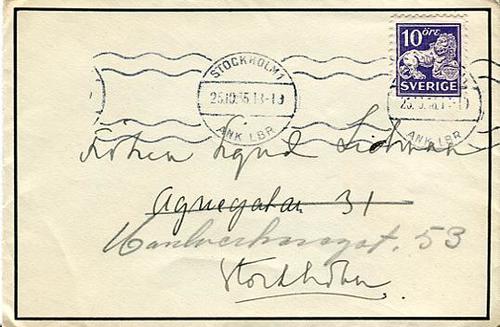 10 öre
SVERIGE
STOCKHOLM 1
25.10.35.18-19
ANK LBR
ANK LBR
Fröken Sigrid Lidman
Agnegatan 31
Hantverkaregat. 53
Stockholm